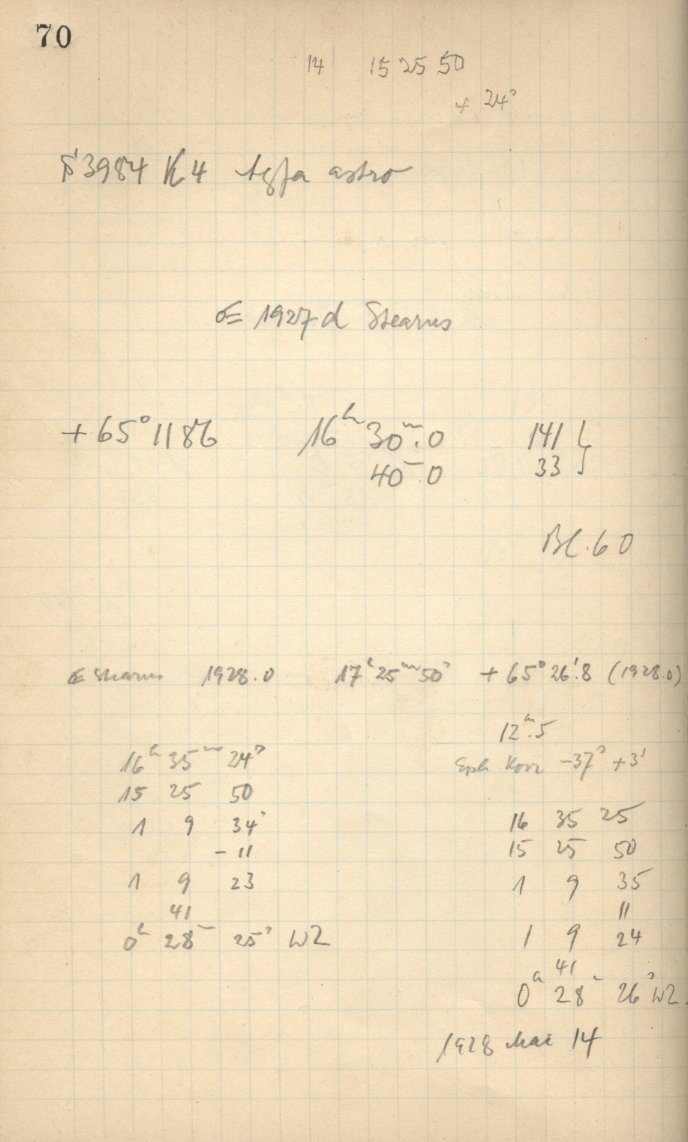 70
14 15 25 50
+ 24ˢ
3984 K4 Agfa astro
☄ 1927 d Stearns
+65° 1186 16ʰ 30ᵐ.0 141
40ᵐ.0 33
Bl. 60
☄ Stearns 1928.0 17ʰ 25ᵐ 50ˢ +65° 26'.8 (1928.0)
12ᵐ.5
Eph Korr −37ˢ +3'
16ʰ 35ᵐ 24ˢ
15 25 50
1 9 34ˢ
− 11
1 9 23
41
0ʰ 28ᵐ 25ˢ WZ
16 35 25
15 25 50
1 9 35
11
1 9 24
41
0ʰ 28ᵐ 26ˢ WZ.
1928 Mai 14